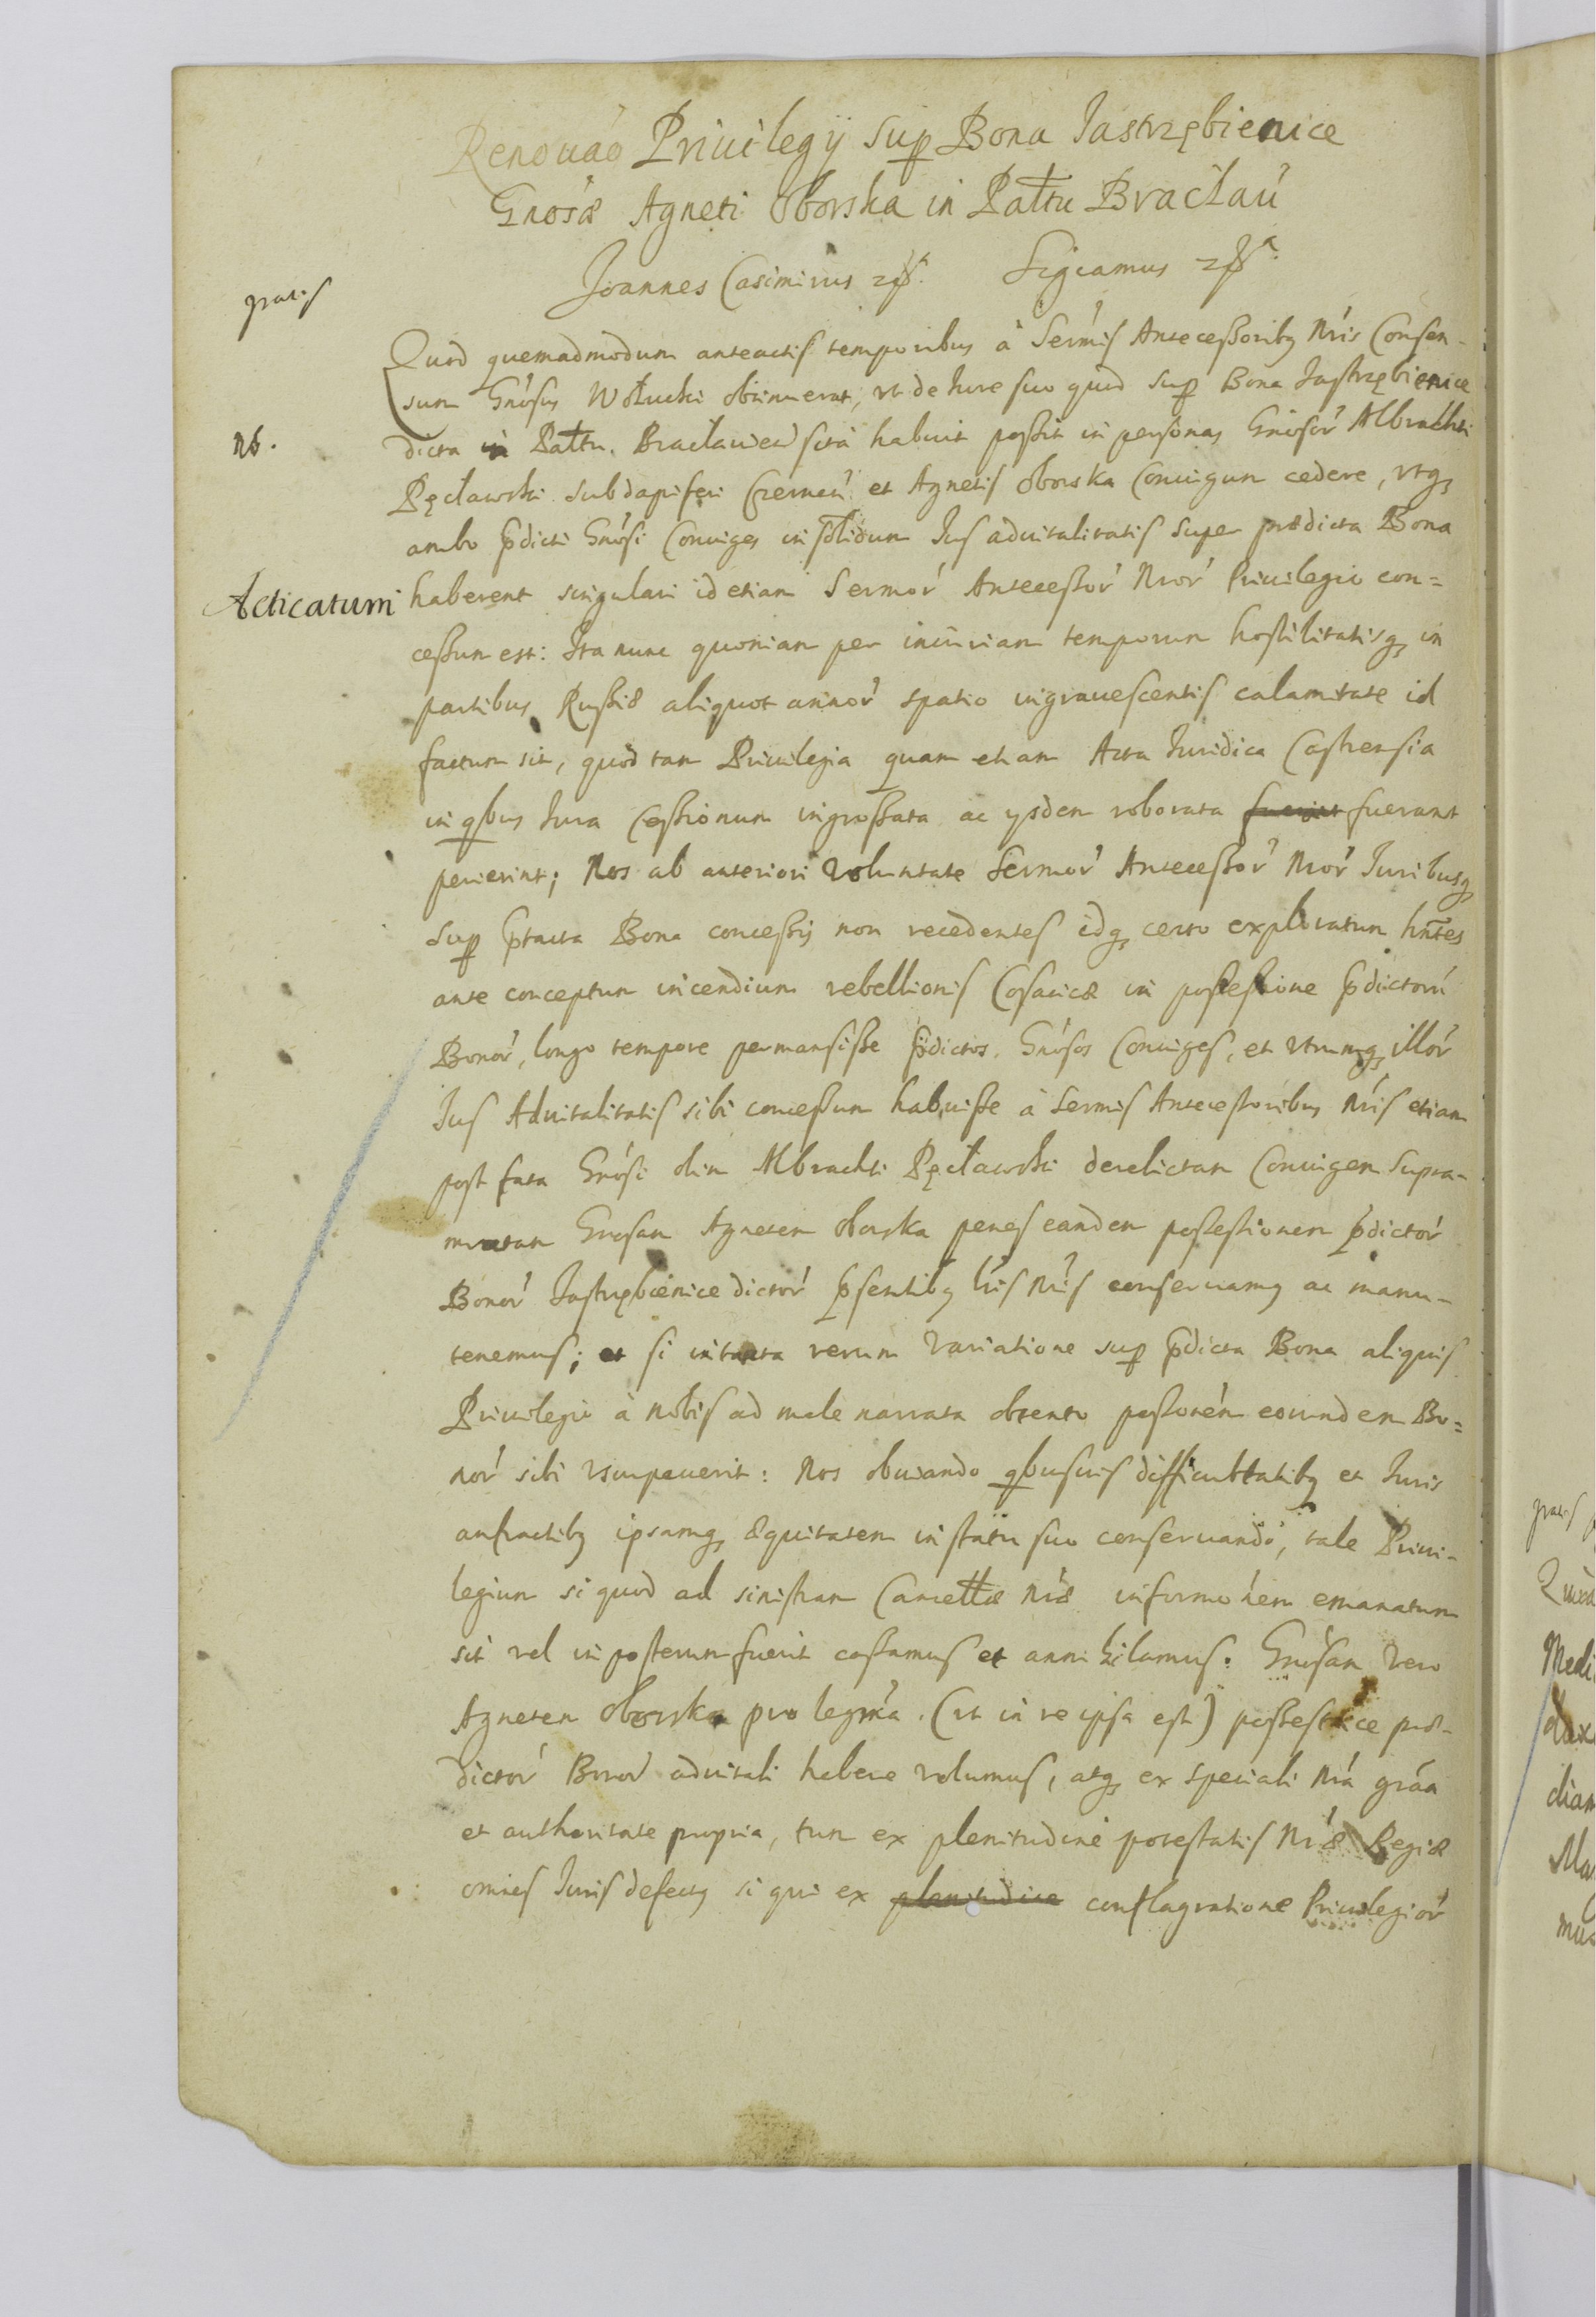 Renouaó Priuilegÿ Sup Bona Jastrzębienice
Gnosæ Agneti Oborska in Pałtu Bracłaú
Joannes Casimirus Sigcamus
gratis
Quod quemadmodum anteactis temporibus à Sermis Antecessoribq Nris Consen-
sum Gnosus Wołucki obtinuerat, vt de Iure suo quod Sup Bona Jastrzębienice
nb.
dicta in Pałtu Bracłauien sita habuit possit in personas Gnosor Albrachti
Pęcławski Subdapiferi Czerneń et Agnetis Oborska Coniugum cedere, vtq
ambo pdicti Gnosi Coniuges in solidum Jus aduitalitatis Super prædicta Bona
Acticatum
haberent singulari id etiam Sermor Antecessor Nror Priuilegio con=
cessum est: Ita nunc quoniam per iniuriam temporum hostilitatisq in
partibus Russiæ aliquot annor spatio ingrauescentis calamitate id
factum sit, quod tam Priuilegia quam etiam Acta Iuridica Castrensia
in qbus Iura Cessionum ingrossata ac ysdem roborata fuerint fuerant
perierint; Nos ab anteriori voluntate Sermor Antecessor Nror Iuribusq
Sup ptacta Bona concessis non recedentes idq certo exploratum hntes
ante conceptum incendium rebellionis Cosacicæ in possessione pdictorú
Bonor, longo tempore permansisse pdictos Gnosos Coniuges, et vtrumq illor
Jus Aduitalitatis sibi concessum habuisse à Sermis Antecessoribus Nris etiam
post fata Gnosi olim Albrachti Pęcławski derelictam Coniugem Supra-
mratam Gnosam Agnetem Oborska penes eandem possessionem pdictor
Bonor Jastrzębienice dictor psentibq lris Nris conseruamq ac manu-
tenemus; et si in tanta rerum variatione sup pdicta Bona aliquis
Priuilegio à nobis ad male narrata obtento possonem eorundem Bo=
nor sibi vsurpauerit: Nos obuiando qbusuis difficultatibq et Iuris
anfractibq ipsamq æquitatem in statu suo conseruando, tale Priui-
legium si quod ad sinistram Cancellæ Nræ informonem emanatum
sit vel in posterum fuerit cassamus et annihilamus. Gnosam vero
Agnetem Oborska pro legma (vt in re ipsa est) possestrice præ-
dictor Bonor aduitali habere volumus, atq ex speciali Nra graa
et authoritate propria, tum ex plenitudine potestatis Nræ Regiæ
omnes Iuris defectq si qui ex plenitudine conflagratione Priuilegior
gratis